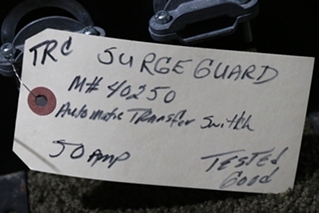 TRC SURGE GUARD
M# 40250
Automatic Transfer Switch
50 Amp
TESTED
Good